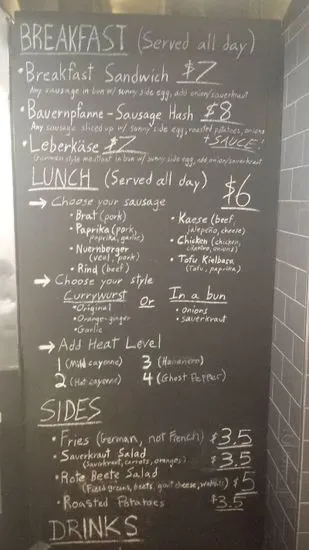 BREAKFAST (Served all day)
• Breakfast Sandwich $7
Any sausage in bun w/ sunny side egg, add onion/sauerkraut
• Bauernpfanne - Sausage Hash $8
Any sausage sliced up w/ sunny side egg, roasted potatoes, onions
+ SAUCE!
• Leberkäse $7
(German style meatloaf in bun w/ sunny side egg, add onion/sauerkraut
LUNCH (Served all day) $6
→ Choose your sausage
• Brat (pork)
• Paprika (pork, paprika, garlic)
• Nuernberger (veal, pork)
• Rind (beef)
• Kaese (beef, jalapeño, cheese)
• Chicken (chicken, cilantro, onions)
• Tofu Kielbasa (Tofu, paprika)
→ Choose your style
Currywurst or In a bun
• Original
• Orange-ginger
• Garlic
• onions
• sauerkraut
→ Add Heat Level
1 (Mild cayenne) 3 (Habanero)
2 (Hot cayenne) 4 (Ghost Pepper)
SIDES
• Fries (German, not French) $3.5
• Sauerkraut Salad $3.5
(Sauerkraut, carrots, oranges)
• Rote Beete Salad $5
(Field greens, beets, goat cheese, walnuts)
• Roasted Potatoes $3.5
DRINKS